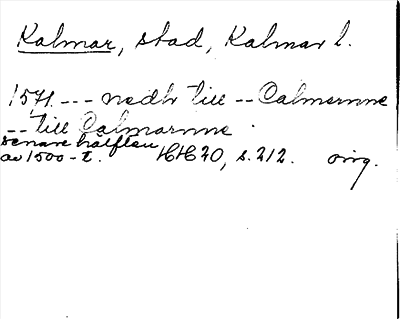 Kalmar, stad, Kalmar l.
1571. --- nedh till -- Calmarnne
-- till Calmarnne.
senare hälften
av 1500-t. HH20, s. 212. orig.